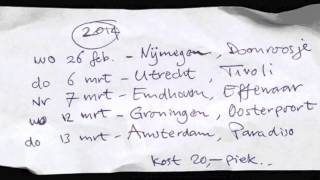 2014
wo 26 feb. - Nijmegen, Doornroosje
do 6 mrt - Utrecht, Tivoli
vr 7 mrt - Eindhoven, Effenaar
wo 12 mrt - Groningen, Oosterpoort
do 13 mrt - Amsterdam, Paradiso
kost 20,- piek..